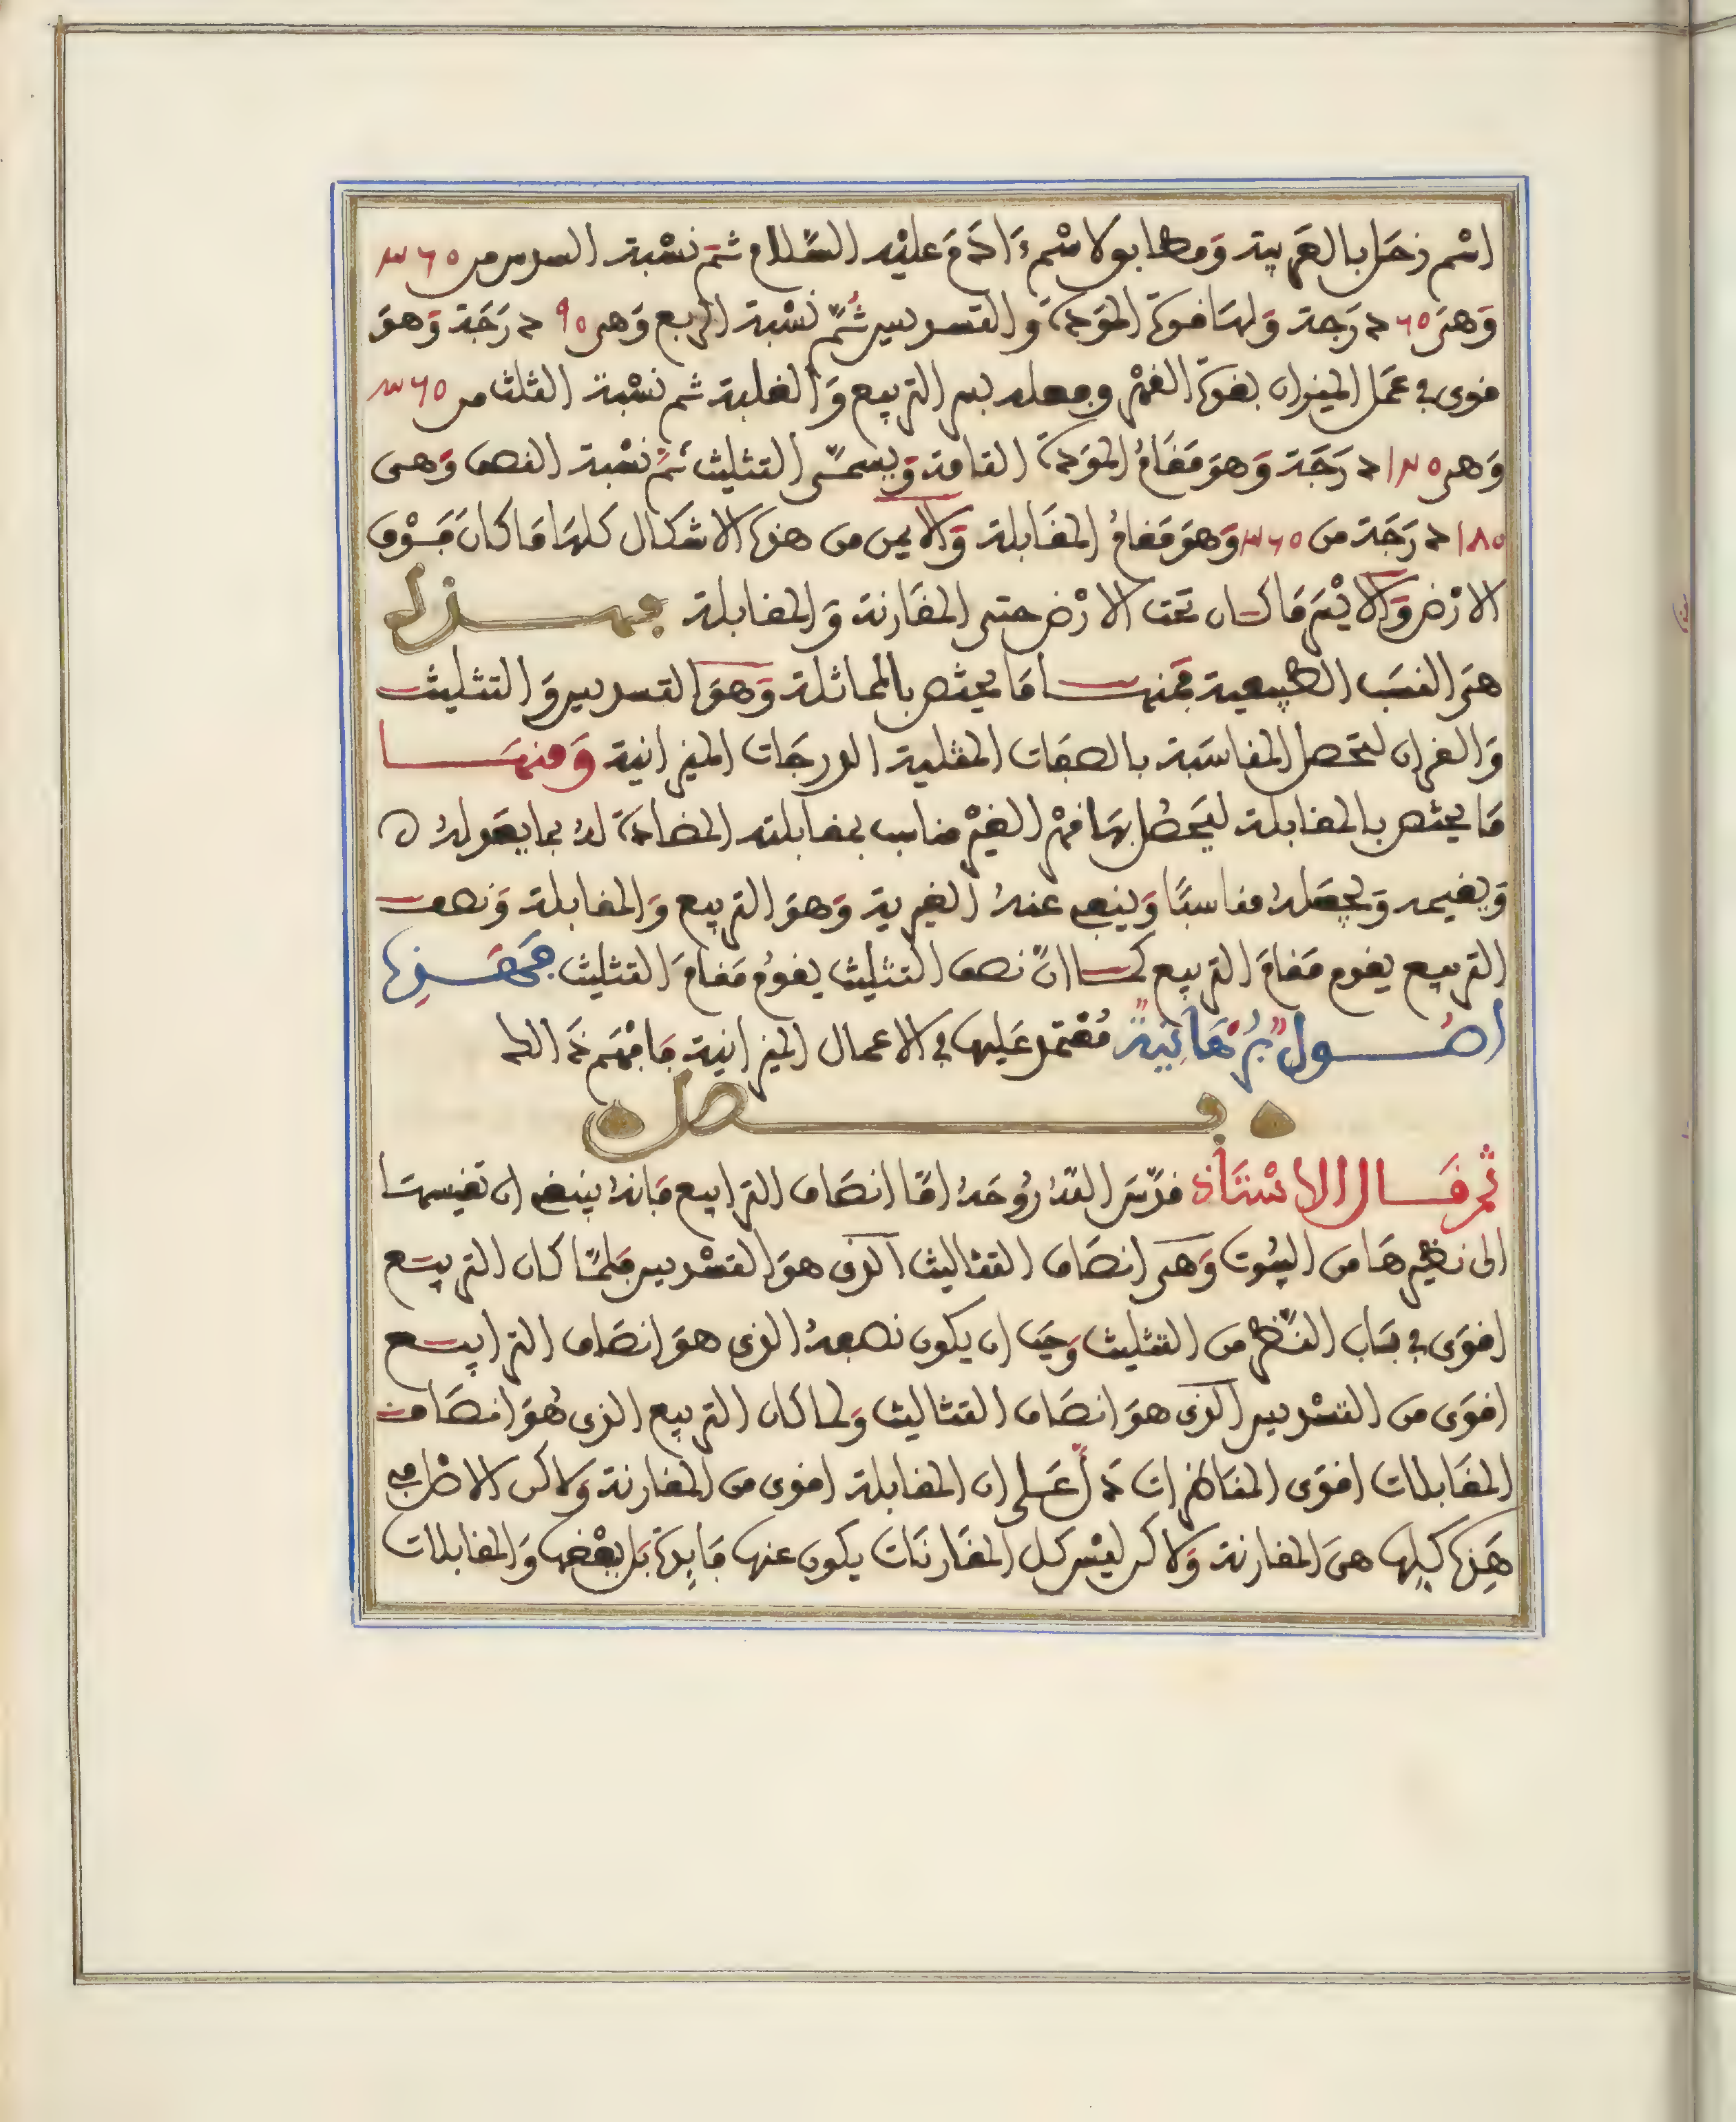 اسْم زحَل بالعَربية وَمطابق لاسْم ءَادَمَ عليْه السَّلام ثمّ نسْبة السدس من ٣٦٠
وَهىَ ٦٠ دَرَجة وَلهَا قوة المَودة والتسديس ثُمّ نسْبة الربع وَهى ٩٠ دَرَجَة وَهوَ
قوى فى عَمَل الميزان بقوة القهْر وجعله بين التربيع وَالغلبة ثم نسْبة الثلث من ٣٦٠
وَهى ١٢٠ دَرَجَة وَهوَ مَقَامُ المَودَة التامة وَيسمّى التثليث ثمّ نسْبة النصف وَهى
١٨٠ دَرَجَة من ٣٦٠ وَهوَ مَقامُ المقَابلة وَالايمن من هذه الاشكال كلهَا مَا كانَ فَوْق
الارْض وَالايْسَر مَا كان تحت الارْض حتى المقَارنة وَالمقابلة فهذه
هىَ النسَب الطبيعية فمنها مَا يختص بالمماثلة وَهوَ التسديس وَالتثليث
وَالقران لتحصل المناسَبة بالصفَات المثلية الدرجَات الميزانية وَمنهَا
مَا يختص بالمقابلة ليَحصُل بهَا قهْر الغيْر مناسب بمقابلته المضادَة لهُ بما يعَوله ه
وَيقيمه وَيجعَلهُ مناسبًا وَينفى عنهُ الغيرية وَهوَ التربيع وَالمقابلة وَنصف
التربيع يقوم مَقامَ التربيع كما انّ نصف التثليث يقومُ مَقامَ التثليث فهَذه
اصُول بُرْهَانيةٌ مُعْتمد عَليها فى الاعمال الميزانية فَافْهَم ذَالك
فصل
ثم قَال الاسْتَاذ قدّسَ اللهُ رُوحَهُ امّا انصَاف الترابيع فَانهُ ينبغى ان تقيسهَا
الى نظيرهَا من البيُوت وَهىَ انصَاف التثاليث الذى هوَ التسْديس فلمّا كان التربيع
اقوَى فى بَاب النّظر من التثليث وَجَب ان يكون نصفهُ الذى هوَ انصَاف الترابيع
اقوَى من التسْديس الذى هوَ انصَاف التثاليث وَلما كان التربيع الذى هُوَ انصَاف
المقَابلات اقوَى المنَاظرات دَلّ عَلى ان المقابلة اقوى من المقارنة وَلاكن الاصْل فى
هَذه كلها هىَ المقارنة وَلاكن ليْس كل المقَارنَات يكون عنها فَايدَة بَل بعْضها وَالمقابلات